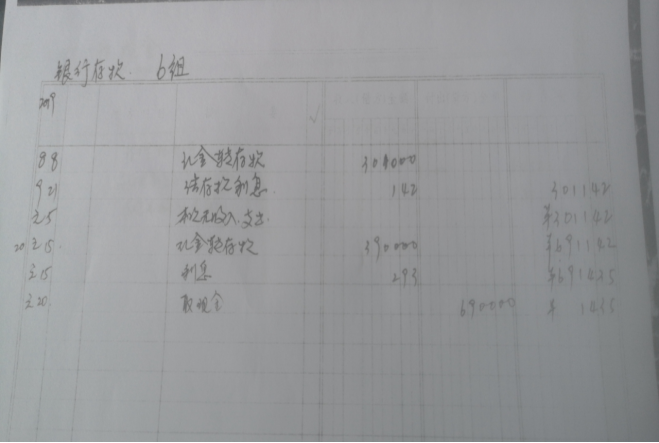 银行存款 6组
2019
8 8 现金转存款 301000
9 21 结存款利息 142 301142
12 5 本次无收入支出 ¥301142
20 12 15 现金转存款 390000 ¥691142
12 15 利息 293 ¥691435
12 20 取现金 690000 ¥ 1435